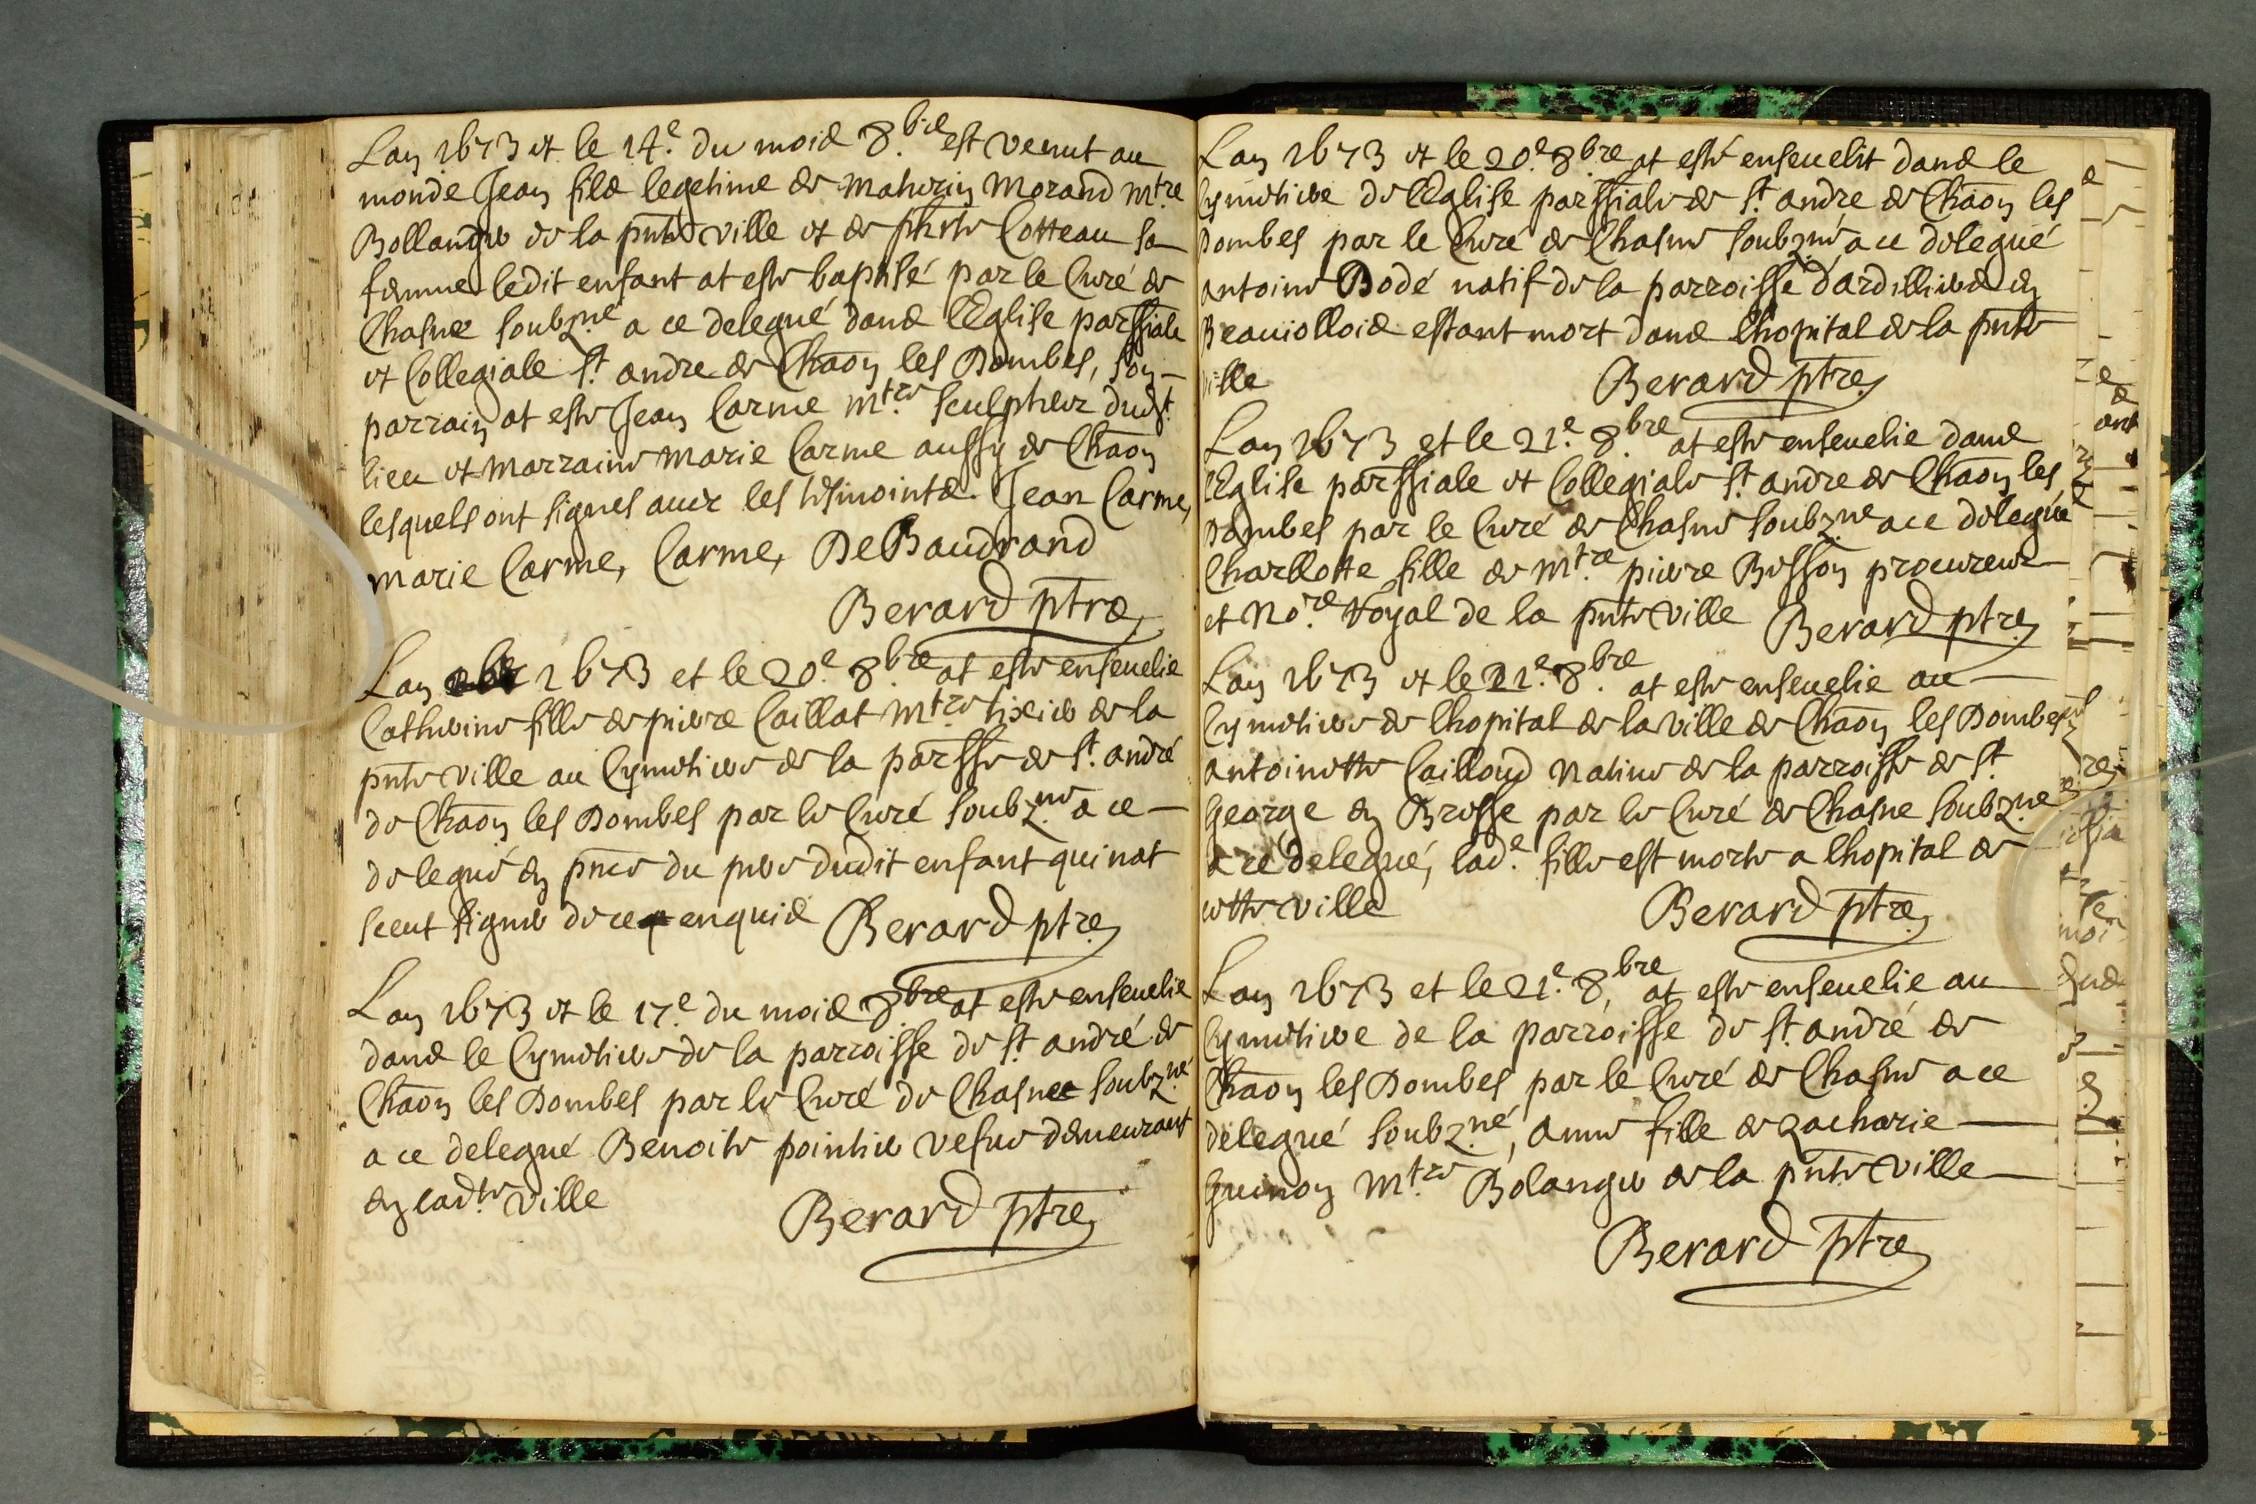 Lan 1673 et le 14.e du mois 8.bre est venut au
monde Jean fils legetime de Mathurin Morand m.tre
Bollanger de la pnte ville et de Cotteau sa
femme ledit enfant at este baptisé par le Curé de
Chasnes soubz.né a ce delegué dans lEglise parssiale
et Collegiale s.t andre de Chaon les Dombes, son
parrain at este Jean Carme m.tre sculpteur dud.t
lieu et Marraine Marie Carme aussy de Chaon
lesquels ont signes avec les tesmoints. Jean Carme,
marie Carme, Carme, DeBaudrand
Berard ptre
Lan 1673 et le 20.e 8.bre at este enseuelie
Catherine fille de pierre Caillat M.tre tixier de la
pnte ville au Cymetiere de la parsse de s.t andré
de Chaon les Dombes par le Curé soubz.né a ce
delegué en pnce du pere dudit enfant qui nat
sceut signer de ce enquis Berard ptre
Lan 1673 et le 17.e du mois 8bre at este enseuelie
dans le Cymetiere de la parroisse de s.t andré de
Chaon les Dombes par le Curé de Chasnes soubz.né
a ce delegué Benoite pointier vefue demeurant
en lad.te ville
Berard ptre
Lan 1673 et le 20.e 8.bre at esté enseuelit dans le
Cymetiere de lEglise parssiale de s.t andre de Chaon les
Dombes par le Curé de Chasne soubzné a ce delegué
antoine Bodé natif de la parroisse dardillieres en
Beauiollois estant mort dans lhopital de la pnte
ville
Berard ptre
Lan 1673 et le 21.e 8.bre at este enseuelie dans
lEglise parssiale et Collegiale s.t andre de Chaon les
Dombes par le Curé de Chasne soubzne a ce delegué
Charllotte fille de M.tre pierre Bosson procureur
et No.re Royal de la pnte ville Berard ptre
Lan 1673 et le 21.e 8.bre at este enseuelie au
Cymetiere de lhopital de la ville de Chaon les Dombes
antoinette Cailloud natiue de la parroisse de s.t
George en Brosse par le Curé de Chasne soubz.ne
a ce delegué, lad.e fille est morte a lhopital de
cette ville
Berard ptre
Lan 1673 et le 21.e 8.bre at este enseuelie au
Cymetiere de la parroisse de s.t andré de
Chaon les Dombes par le Curé de Chasne a ce
delegué soubz.né, anne fille de Zacharie
Guinon M.tre Bolanger de la pnte ville
Berard ptre